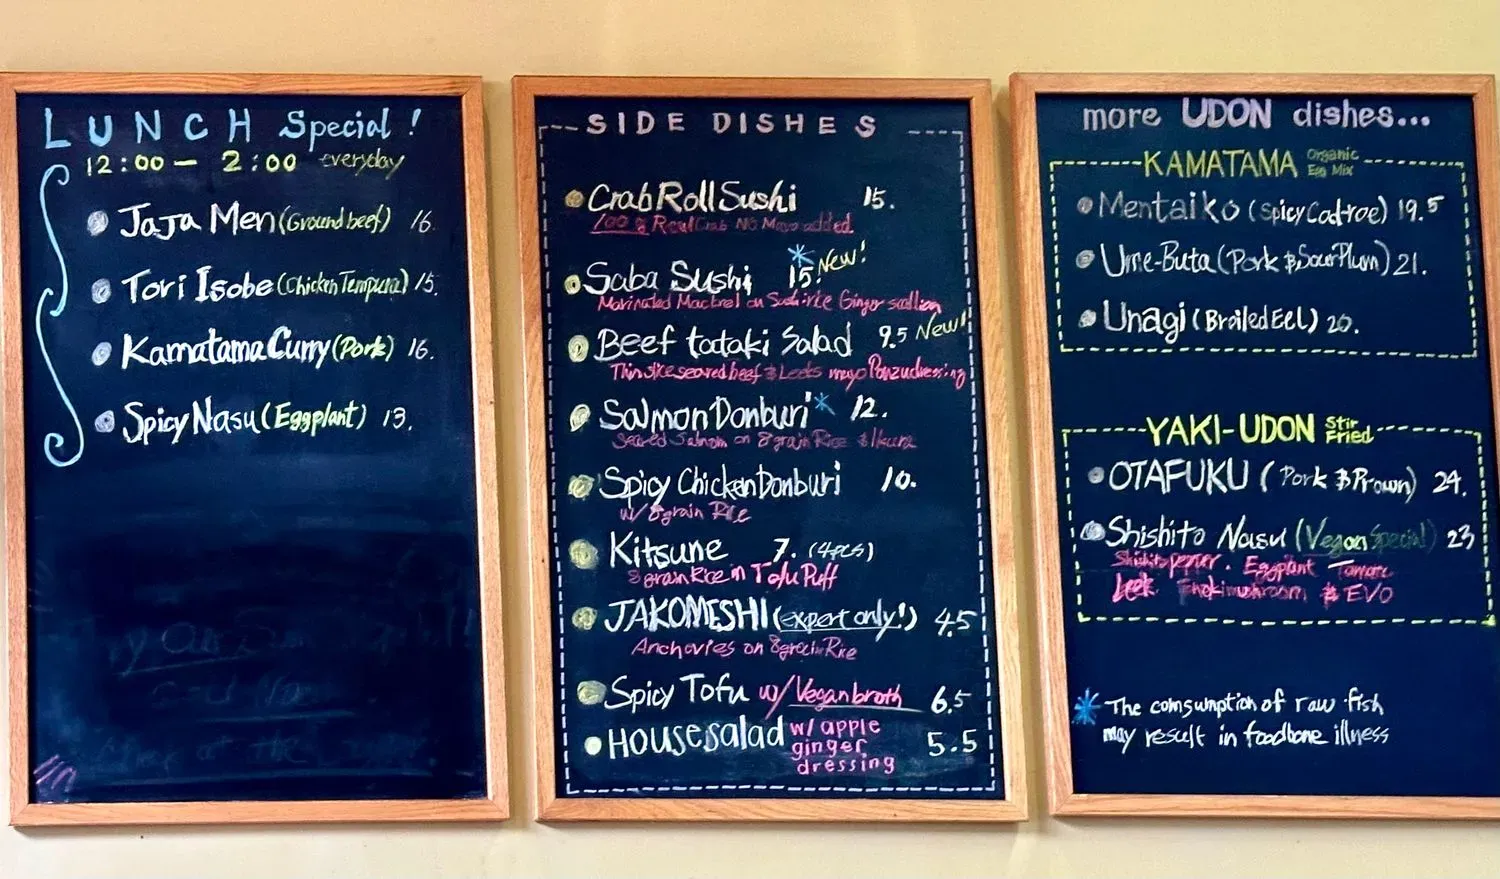 LUNCH Special!
12:00 - 2:00 everyday
JaJa Men (Ground beef) 16.
Tori Isobe (Chicken Tempura) 15.
Kamatama Curry (Pork) 16.
Spicy Nasu (Eggplant) 13.
SIDE DISHES
Crab Roll Sushi 15.
100% Real Crab No Mayo added
Saba Sushi * 15. New!
Marinated Mackrel on Sushi rice Ginger scallion
Beef tataki Salad 9.5 New!
Thin slice seared beef & Leeks mayo Ponzu dressing
Salmon Donburi * 12.
Seared Salmon on 8 grain Rice & Ikura
Spicy Chicken Donburi 10.
w/ 8 grain Rice
Kitsune 7. (4pcs)
8 grain Rice in Tofu Puff
JAKOMESHI (expert only!) 4.5
Anchovies on 8 grain Rice
Spicy Tofu w/ Vegan broth 6.5
HOUSE salad w/ apple
ginger 5.5
dressing
more UDON dishes...
KAMATAMA Organic
Egg Mix
Mentaiko (Spicy Cod roe) 19.5
Ume-Buta (Pork & Sour Plum) 21.
Unagi (Broiled Eel) 20.
YAKI-UDON Stir
Fried
OTAFUKU (Pork & Prawn) 24.
Shishito Nasu (Vegan Special) 23
Shishito pepper. Eggplant
Leek Enoki mushroom & EVO
* The comsumption of raw fish
may result in foodbone illness